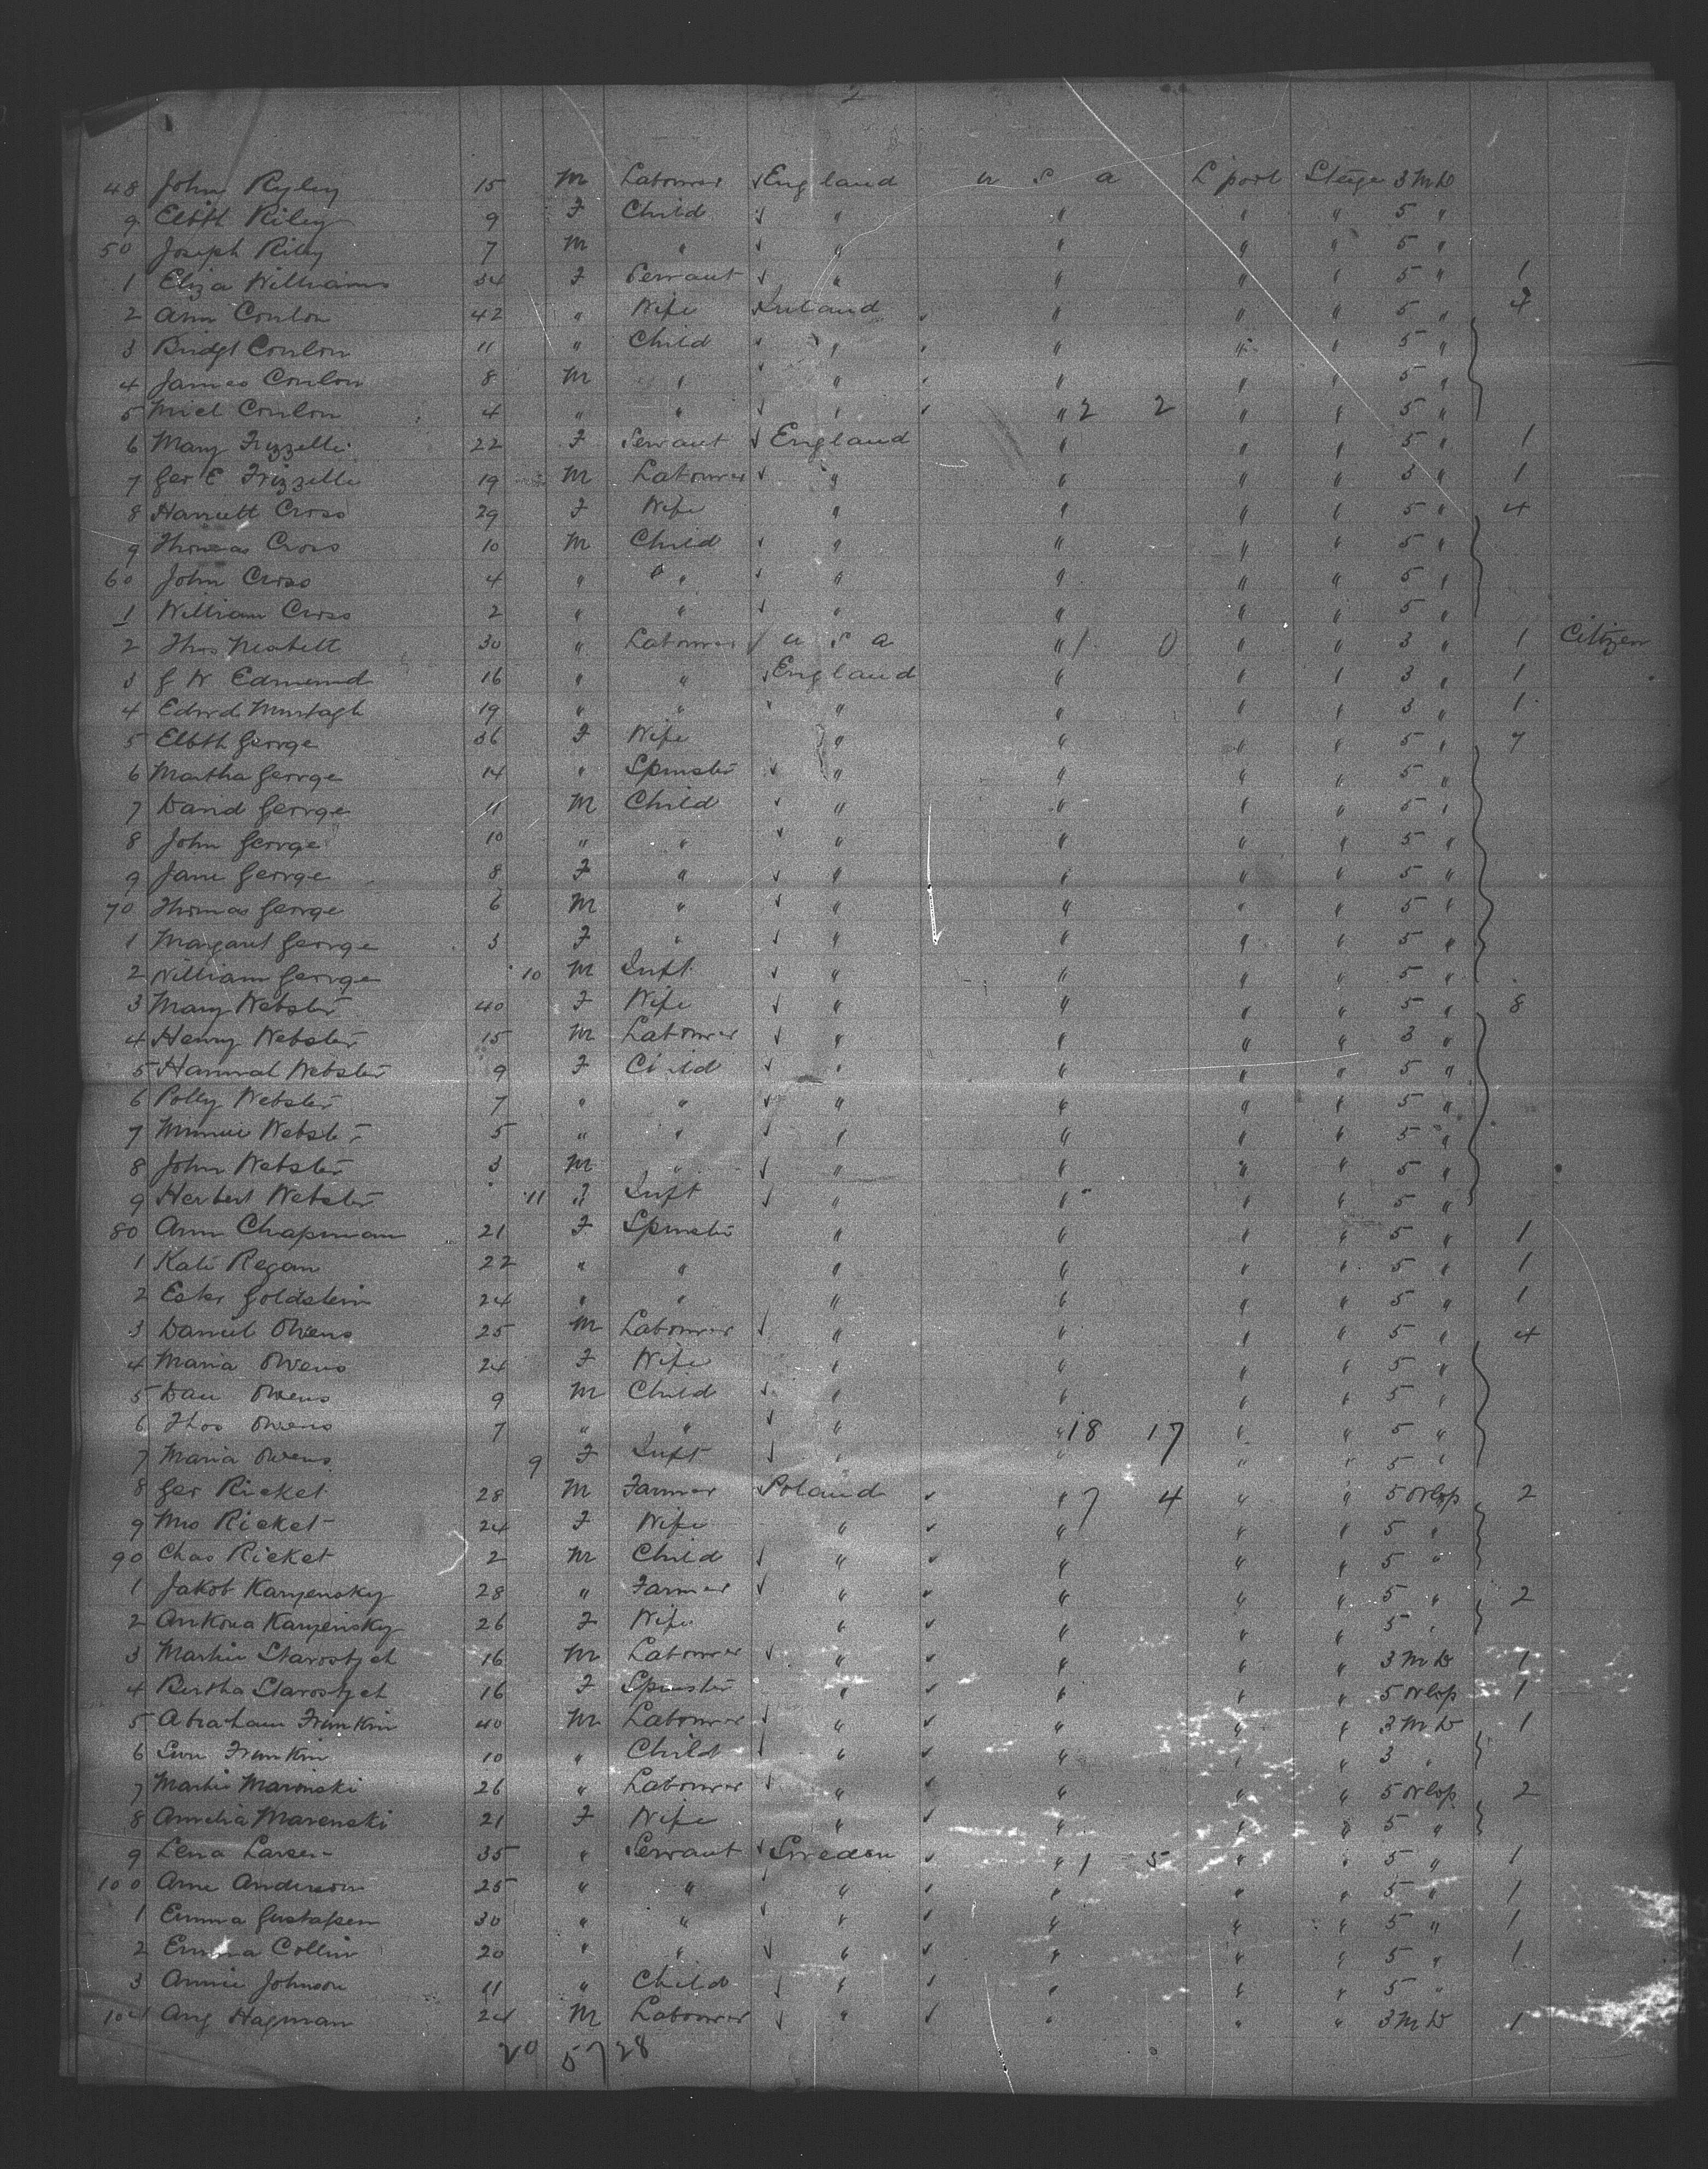 2
48 John Ryley 15 M Labourer England U S A L'pool Steige 3 M D
9 Elbth Riley 9 F Child " " " " 5 "
50 Joseph Riley 7 M " " " " " 5 "
1 Eliza Williams 34 F Servant " " " " 5 " 1
2 Ann Conlon 42 " Wife Ireland " " " 5 " 4
3 Bridgt Conlon 11 " Child " " " " 5 "
4 James Conlon 8 M " " " " " 5 "
5 Michl Conlon 4 " " " " 2 2 " " 5 "
6 Mary Frizzelle 22 F Servant England " " " 5 " 1
7 Geo E Frizzelle 19 M Labourer " " " " 3 " 1
8 Harriett Cross 29 F Wife " " " " 5 " 4
9 Thomas Cross 10 M Child " " " " 5 "
60 John Cross 4 " " " " " " 5 "
1 William Cross 2 " " " " " " 5 "
2 Thos Nesbitt 30 " Labourer U S A " 1 0 " " 3 " 1 Citizen
3 G W Edmund 16 " " England " " " 3 " 1
4 Edwd Murtagh 19 " " " " " " 3 " 1
5 Elbth George 36 F Wife " " " " 5 " 7
6 Martha George 14 " Spinster " " " " 5 "
7 David George 11 M Child " " " " 5 "
8 John George 10 " " " " " " 5 "
9 Jane George 8 F " " " " " 5 "
70 Thomas George 6 M " " " " " 5 "
1 Margaret George 3 F " " " " " 5 "
2 William George 10 M Inft " " " " 5 "
3 Mary Webster 40 F Wife " " " " 5 " 8
4 Henry Webster 15 M Labourer " " " " 3 "
5 Hannah Webster 9 F Child " " " " 5 "
6 Polly Webster 7 " " " " " " 5 "
7 Minnie Webster 5 " " " " " " 5 "
8 John Webster 3 M " " " " " 5 "
9 Herbert Webster 11 " Inft " " " " 5 "
80 Ann Chapman 21 F Spinster " " " " 5 " 1
1 Kate Regan 22 " " " " " " 5 " 1
2 Ester Goldstein 24 " " " " " " 5 " 1
3 Daniel Owens 25 M Labourer " " " " 5 " 4
4 Maria Owens 24 F Wife " " " " 5 "
5 Dan Owens 9 M Child " " " " 5 "
6 Thos Owens 7 " " " " 18 17 " " 5 "
7 Maria Owens 9 F Inft " " " " 5 "
8 Geo Ricket 28 M Farmer Poland " 7 4 " " 5 2
9 Mrs Ricket 24 F Wife " " " " 5 "
90 Chas Ricket 2 M Child " " " " 5 "
1 Jakob Kanzensky 28 " Farmer " " " " 5 " 2
2 Ankona Kanzensky 26 F Wife " " " " 5 "
3 Martin Starostzch 16 M Labourer " " " " 3 M D 1
4 Bertha Starostzch 16 F Spinster " " " " 5 1
5 Abraham Frumkin 40 M Labourer " " " " 3 M D 1
6 Frumkin 10 " Child " " " " 3 "
7 Martin Marinski 26 " Labourer " " " " 5 2
8 Amelia Marenski 21 F Wife " " " " 5 "
9 Lena Larsen 35 " Servant Sweden " 1 5 " " 5 " 1
100 Anne Anderson 25 " " " " " " 5 " 1
1 Emma Gustafsen 30 " " " " " " 5 " 1
2 Emma Collin 20 " " " " " " 5 " 1
3 Annie Johnson 11 " Child " " " " 5 "
104 Aug Hagman 24 M Labourer " " " " 3 M D 1
20 57 28